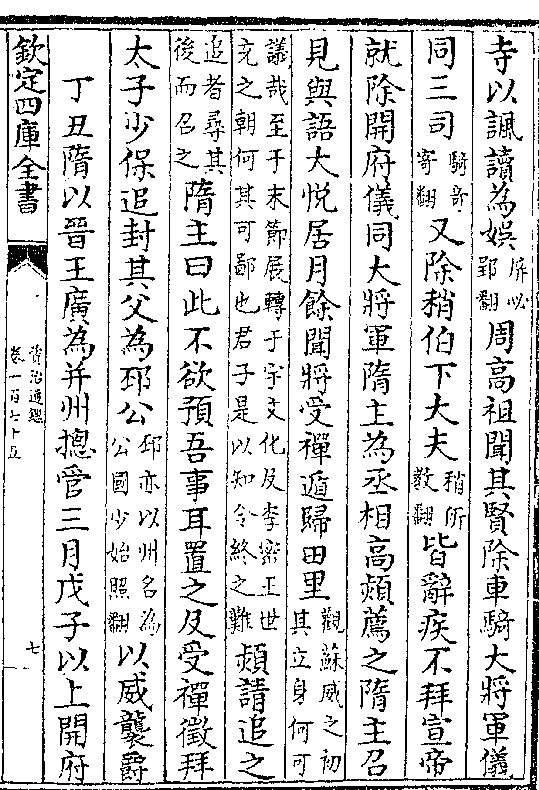 寺以諷讀為娛屏必郢翻周高祖聞其賢除車騎大將軍儀
同三司騎奇寄翻又除稍伯下大夫稍所教翻皆辭疾不拜宣帝
就除開府儀同大將軍隋主為丞相高熲薦之隋主召
見與語大悅居月餘聞將受禪遁歸田里觀蘇威之初其立身何可
議哉至于末節展轉于宇文化及李密王世充之朝何其可鄙也君子是以知令終之難熲請追之
追者尋其後而召之隋主曰此不欲預吾事耳置之及受禪徵拜
太子少保追封其父為邳公邳亦以州名為公國少始照翻以威襲爵
丁丑隋以晉王廣為并州摠管三月戊子以上開府
欽定四庫全書
資治通鑑
卷一百七十五
七